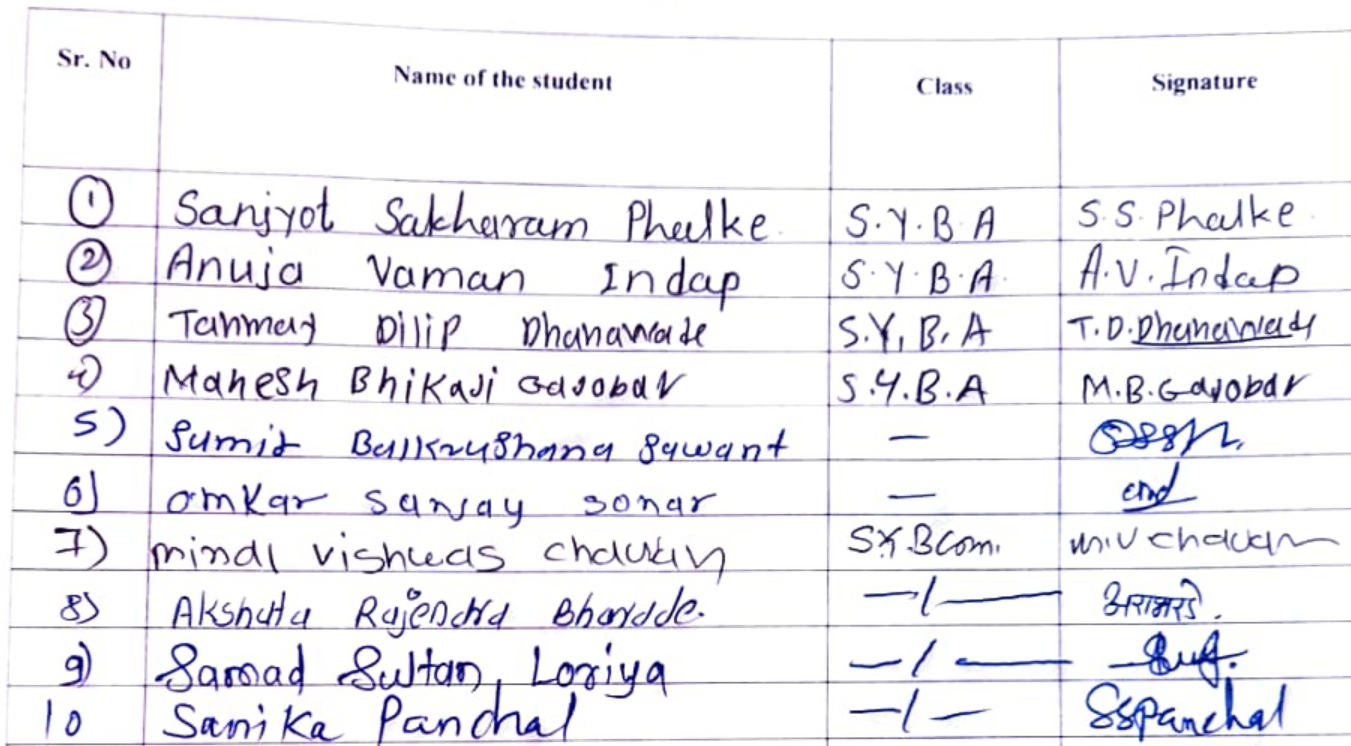 Sr. No Name of the student Class Signature
1 Sanjyot Sakharam Phalke S.Y.B.A S.S. Phalke
2 Anuja Vaman Indap S.Y.B.A. A.V. Indap
3 Tanmay Dilip Dhanawade S.Y.B.A T.D. Dhanawade
4) Mahesh Bhikaji Gavobar S.Y.B.A M.B. Gavobar
5) Sumit Balkrushana Sawant —
6) omkar sanjay sonar —
7) minal vishwas chavan S.Y.Bcom. m.v chavan
8) Akshata Rajendra Bharade. —/—
9) Samad Sultan Loriya —/—
10 Sanika Panchal —/— SSPanchal